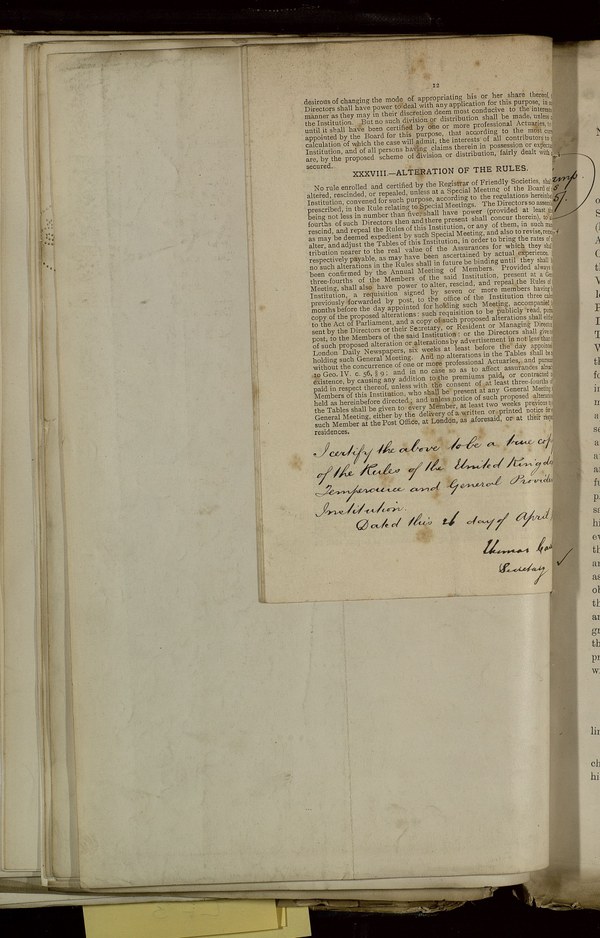 22
desirous of changing the mode of appropriating his or her share thereof,
Directors shall have power to deal with any application for this purpose, in
manner as they may in their discretion deem most conducive to the interests
the Institution. But no such division or distribution shall be made, unless
until it shall have been certified by one or more professional Actuaries,
appointed by the Board for this purpose, that according to the most
calculation of which the case will admit, the interests of all contributors to
Institution, and of all persons having claims therein in possession or
are, by the proposed scheme of division or distribution, fairly dealt with
secured.
XXXVIII.—ALTERATION OF THE RULES.
No rule enrolled and certified by the Registrar of Friendly Societies, shall
altered, rescinded, or repealed, unless at a Special Meeting of the Board of
Institution, convened for such purpose, according to the regulations
prescribed, in the Rule relating to Special Meetings. The Directors so
being not less in number than five, shall have power (provided at least
fourths of such Directors then and there present shall concur therein), to
rescind, and repeal the Rules of this Institution, or any of them, in such
as may be deemed expedient by such Special Meeting, and also to revise,
alter, and adjust the Tables of this Institution, in order to bring the rates of
tribution nearer to the real value of the Assurances for which they
respectively payable, as may have been ascertained by actual experience.
no such alterations in the Rules shall in future be binding until they shall
been confirmed by the Annual Meeting of Members. Provided always
three-fourths of the Members of the said Institution, present at a
Meeting, shall also have power to alter, rescind, and repeal the Rules of
Institution, a requisition signed by seven or more members having
previously forwarded by post, to the office of the Institution three
months before the day appointed for holding such Meeting, accompanied
copy of the proposed alterations: such requisition to be publicly read,
to the Act of Parliament, and a copy of such proposed alterations shall
sent by the Directors or their Secretary, or Resident or Managing Director
post, to the Members of the said Institution: or the Directors shall give
of such proposed alteration or alterations by advertisement in not less than
London Daily Newspapers, six weeks at least before the day
holding such General Meeting. And no alterations in the Tables shall be
without the concurrence of one or more professional Actuaries, and
10 Geo. IV. c. 56, § 9: and in no case so as to affect assurances
existence, by causing any addition to the premiums paid, or contracted
paid in respect thereof, unless with the consent of at least three-fourths
Members of this Institution, who shall be present at any General Meeting
held as hereinbefore directed; and unless notice of such proposed
the Tables shall be given to every Member, at least two weeks previous
General Meeting, either by the delivery of a written or printed notice
such Member at the Post Office, at London, as aforesaid, or at their
residences.
I certify the above to be a true
of the Rules of the United
Temperance and General
Institution.
Dated this 26 day of April
Thomas
Secretary